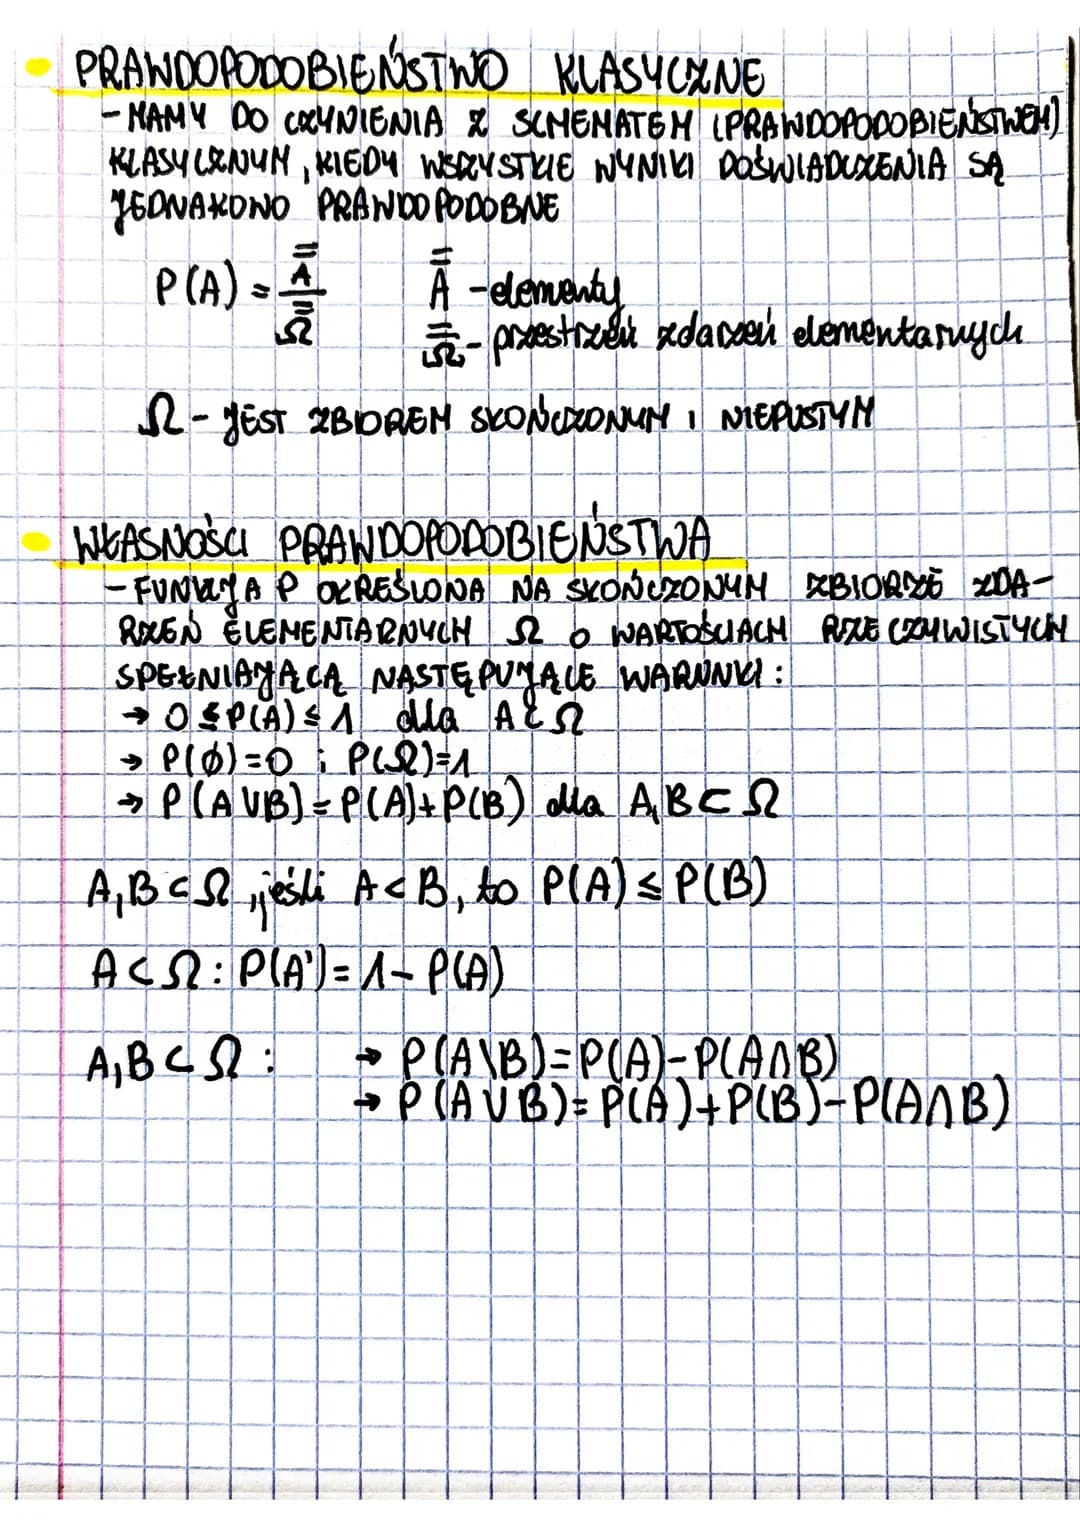 PRAWDOPODOBIEŃSTWO KLASYCZNE
- MAMY DO CZYNIENIA Z SCHEMATEM (PRAWDOPODOBIEŃSTWEM)
KLASYCZNYM, KIEDY WSZYSTKIE WYNIKI DOŚWIADCZENIA SĄ
JEDNAKOWO PRAWDOPODOBNE
P(A) = A̿ / Ω̿
A̿ - elementy
Ω̿ - przestrzeń zdarzeń elementarnych
Ω - JEST ZBIOREM SKOŃCZONYM I NIEPUSTYM
WŁASNOŚCI PRAWDOPODOBIEŃSTWA
- FUNKCJA P OKREŚLONA NA SKOŃCZONYM ZBIORZE ZDA-
RZEŃ ELEMENTARNYCH Ω O WARTOŚCIACH RZECZYWISTYCH
SPEŁNIAJĄCĄ NASTĘPUJĄCE WARUNKI:
→ 0 ≤ P(A) ≤ 1 dla A ⊂ Ω
→ P(∅)=0 i P(Ω)=1
→ P(A∪B)=P(A)+P(B) dla A,B⊂Ω
A,B⊂Ω, jeśli A<B, to P(A) ≤ P(B)
A⊂Ω: P(A')=1-P(A)
A,B⊂Ω: → P(A\B)=P(A)-P(A∩B)
→ P(A∪B)=P(A)+P(B)-P(A∩B)